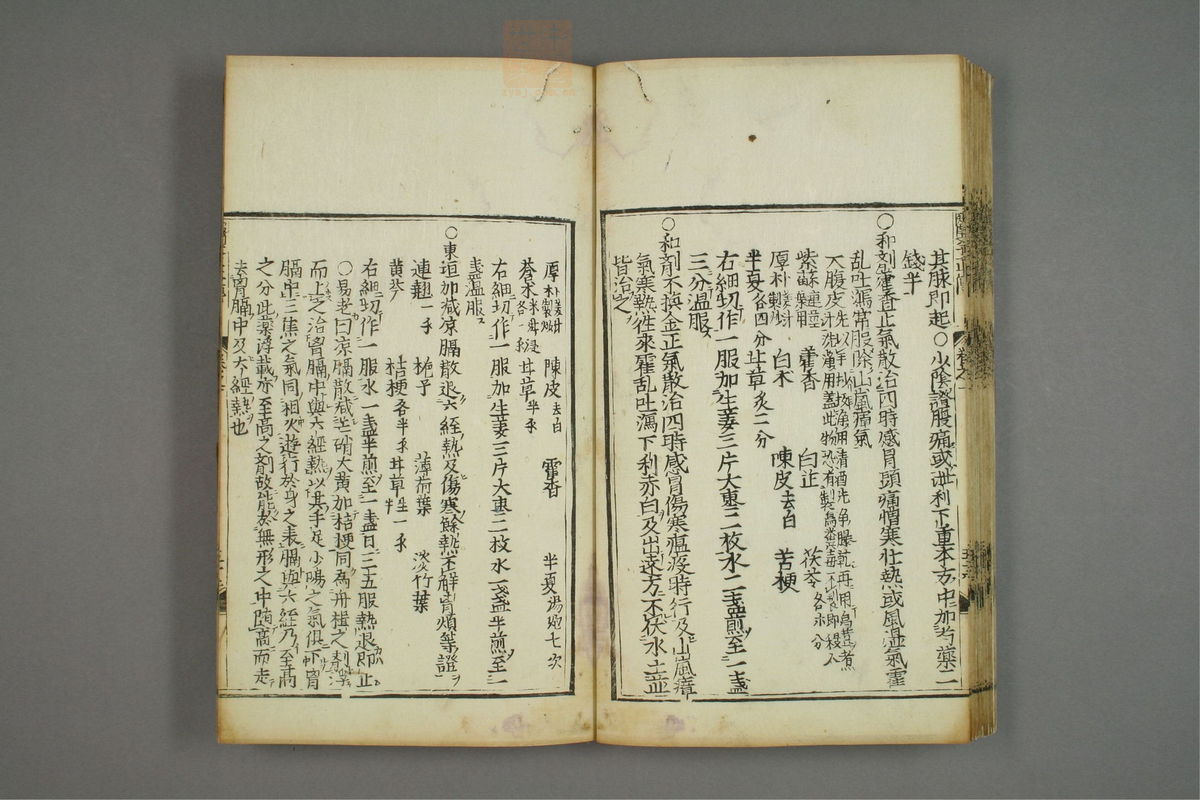 其脉即起○少陰證腹痛或泄利下重本方中加芍藥二
錢半
○和劑藿香正氣散治四時感冒頭痛憎寒壯熱或風濕氣霍
亂吐瀉常服除山嵐瘴氣
大腹皮
紫蘇 藿香 白芷 茯苓各
厚朴姜汁製炒 白朮 陳皮去白 苦梗
半夏各四分 甘草炙二分
右細切作一服加生姜三片大棗二枚水二盞煎至一盞
三分温服
○和劑不換金正氣散治四時感冒傷寒瘟疫時行及山嵐瘴
氣寒熱徃來霍乱吐瀉下利赤白及出遠方不伏水土並
皆治之
厚朴姜汁製炒 陳皮去白 藿香 半夏湯炮七次
蒼朮米泔浸各一戔 甘草半戔
右細切作一服加生姜三片大棗二枚水一盞半煎至一
盞温服
○東垣加减凉膈散退六経熱及傷寒餘熱不解胃煩等證
連翹一戔 梔子 薄荷葉 淡竹葉
黄芩 桔梗各半戔 甘草生一戔半
右細切作一服水一盞半煎至一盞日三五服熱退即止
○易老曰凉膈散减芒硝大黄加桔梗同為舟楫之劑浮
而上之治胷膈中與六經熱以其手足少陽之氣俱下胷
膈中三焦之氣同相火遊行於身之表膈與六経乃至高
之分此藥浮載亦至高之劑故能於無形之中随高而走
去胷膈中及六経熱也